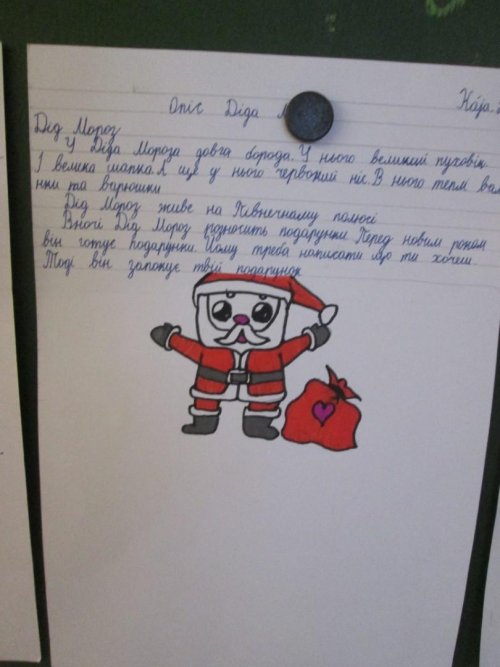 Опіс Діда М
Каја.
Дід Мороз
У Діда Мороза довга борода. У нього великий пуховік.
І велика шапка А ще у нього червоний ніс. В нього теплі вале
нки та варюшки
Дід Мороз живе на Північному полюсі
Вночі Дід Мороз розносить подарунки. Перед новим роком
він готує подарунки. Йому треба написати що ти хочеш.
Тоді він запакує твій подарунок